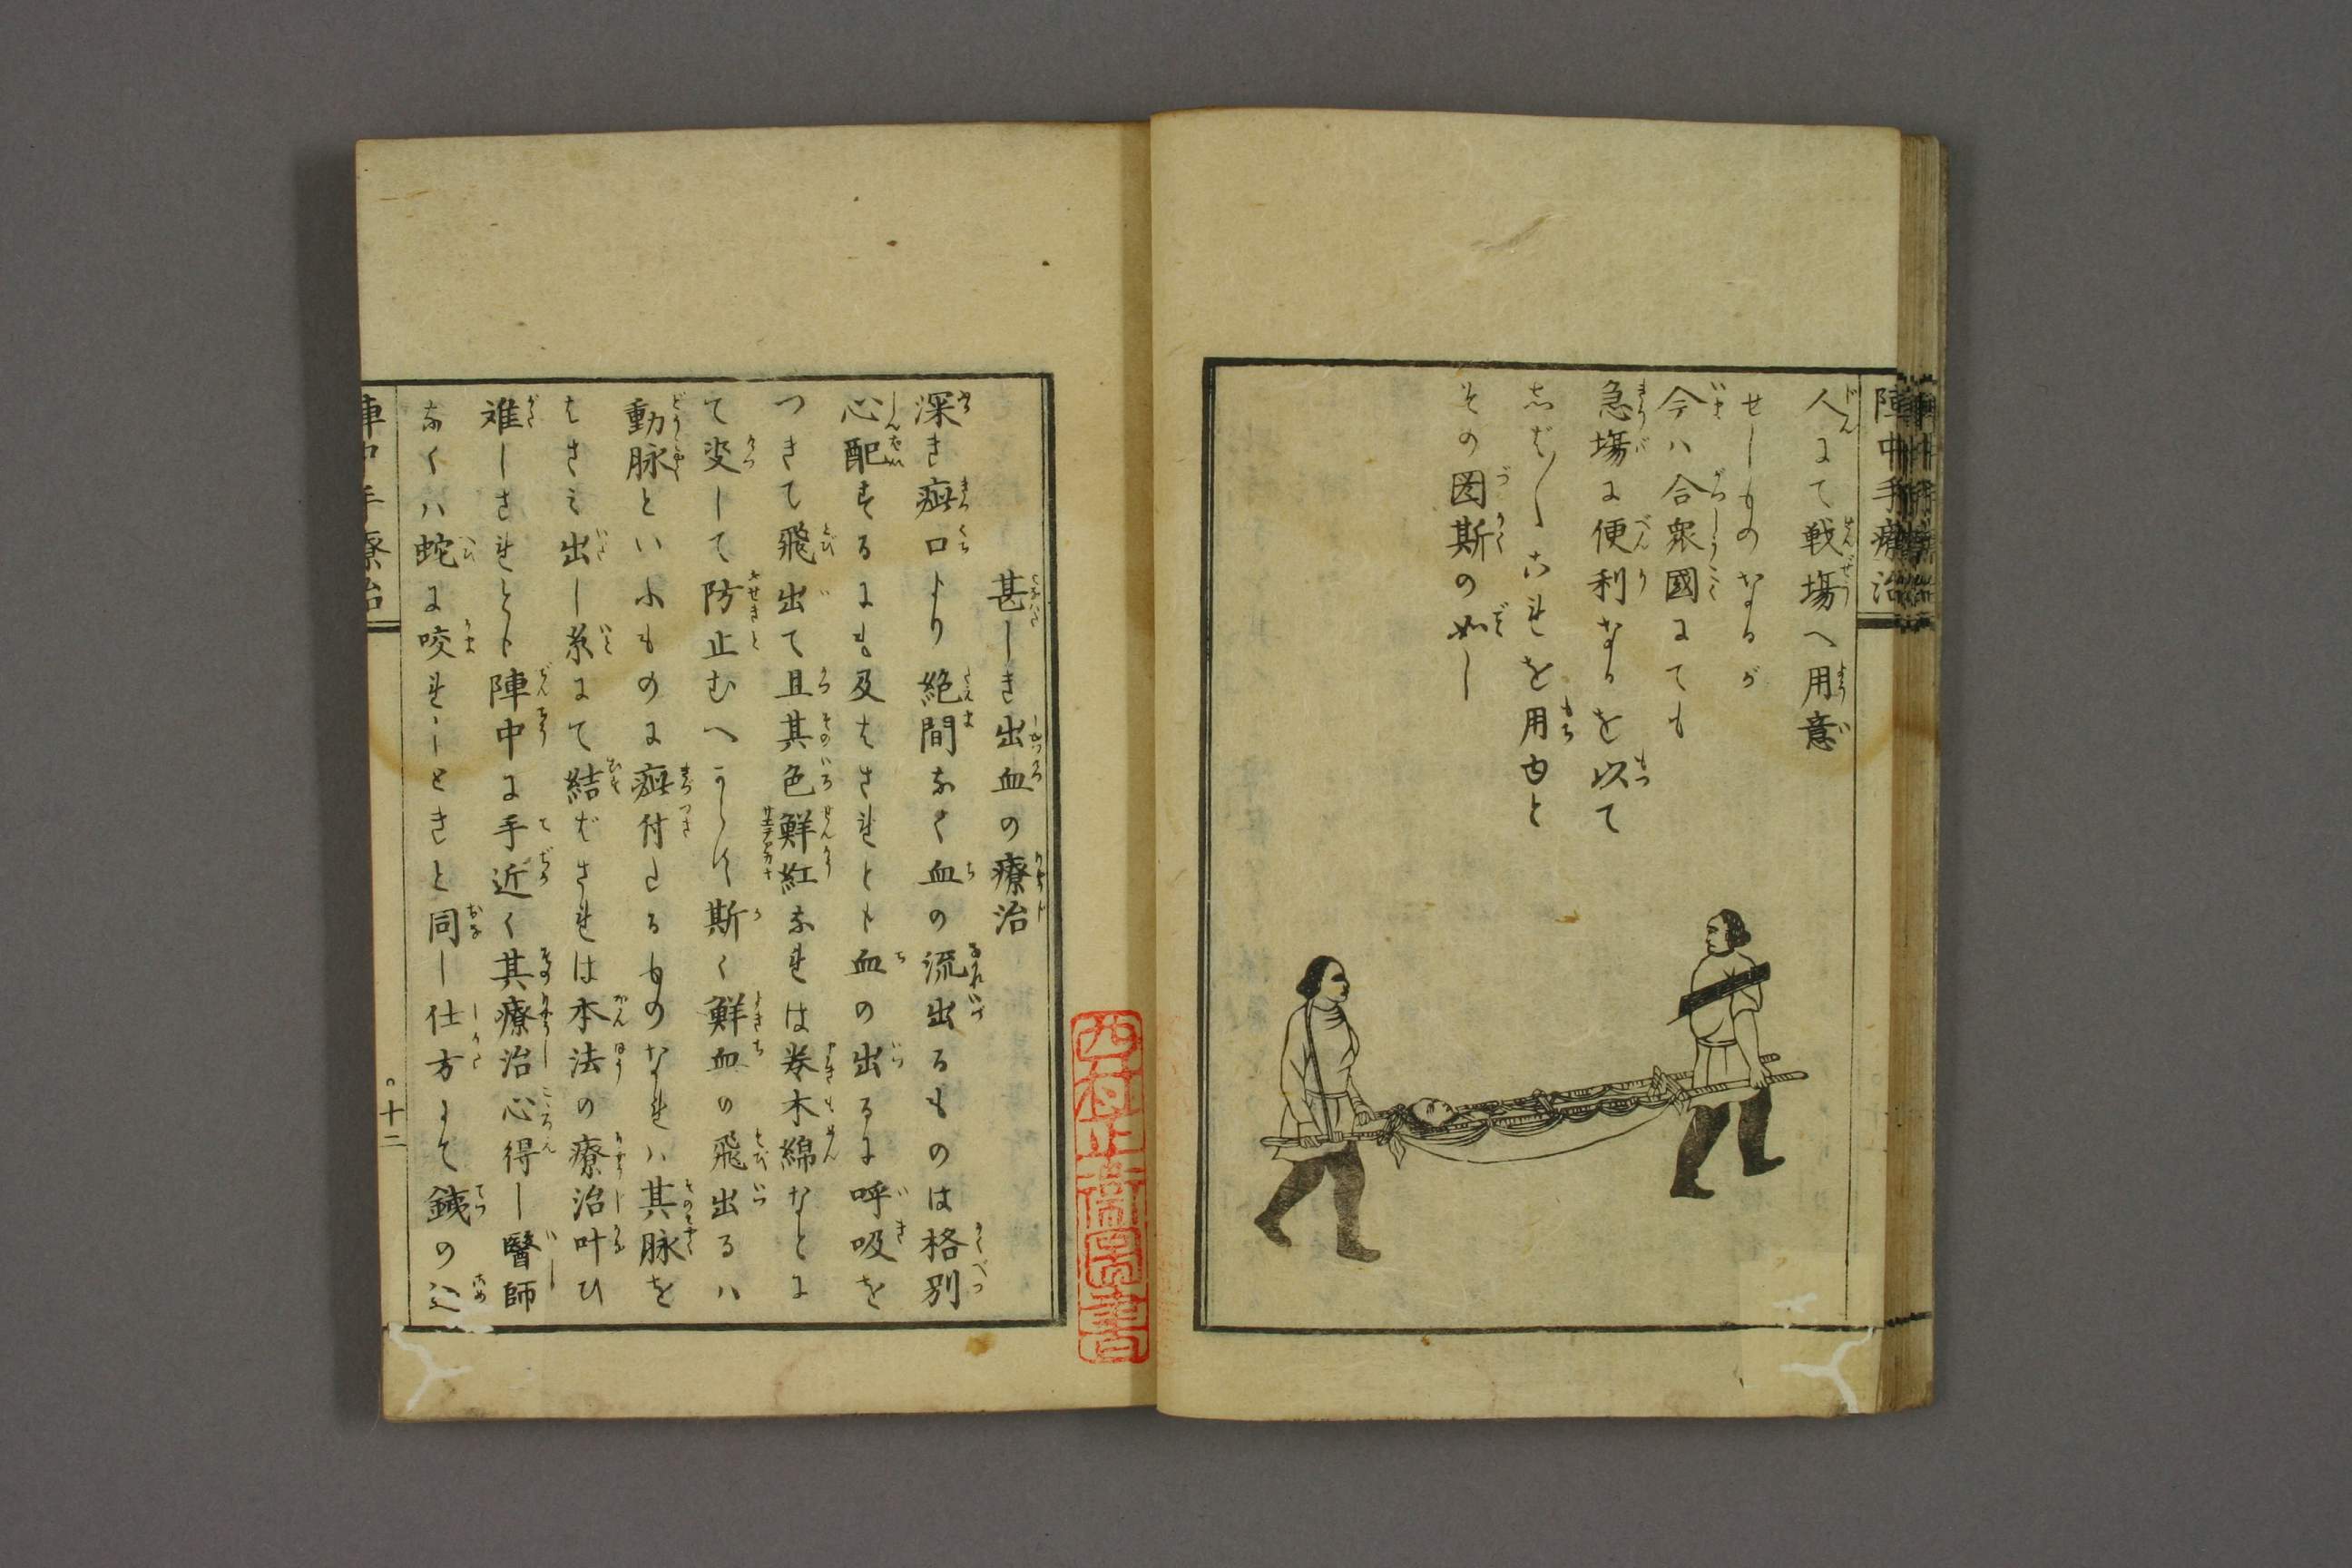 陣中手療治
人にて戦場へ用意
せしものなるが
今ハ合衆國にても
急場に便利なるを以て
志ば〳〵これを用ゆと
その図斯の如し
甚しき出血の療治
深き疵口より絶間なく血の流出るものは格別
心配するにも及はされとも血の出るに呼吸を
つきて飛出て且其色鮮紅なれは巻木綿なとに
て変して防止むへからす斯く鮮血の飛出るハ
動脉といふものに疵付たるものなれハ其脉を
はさみ出し糸にて結ばされは本法の療治叶ひ
難しされとも陣中に手近く其療治心得し醫師
なくハ蛇に咬れしときと同し仕方にて銕の
陣中手療治
十二
西村
書